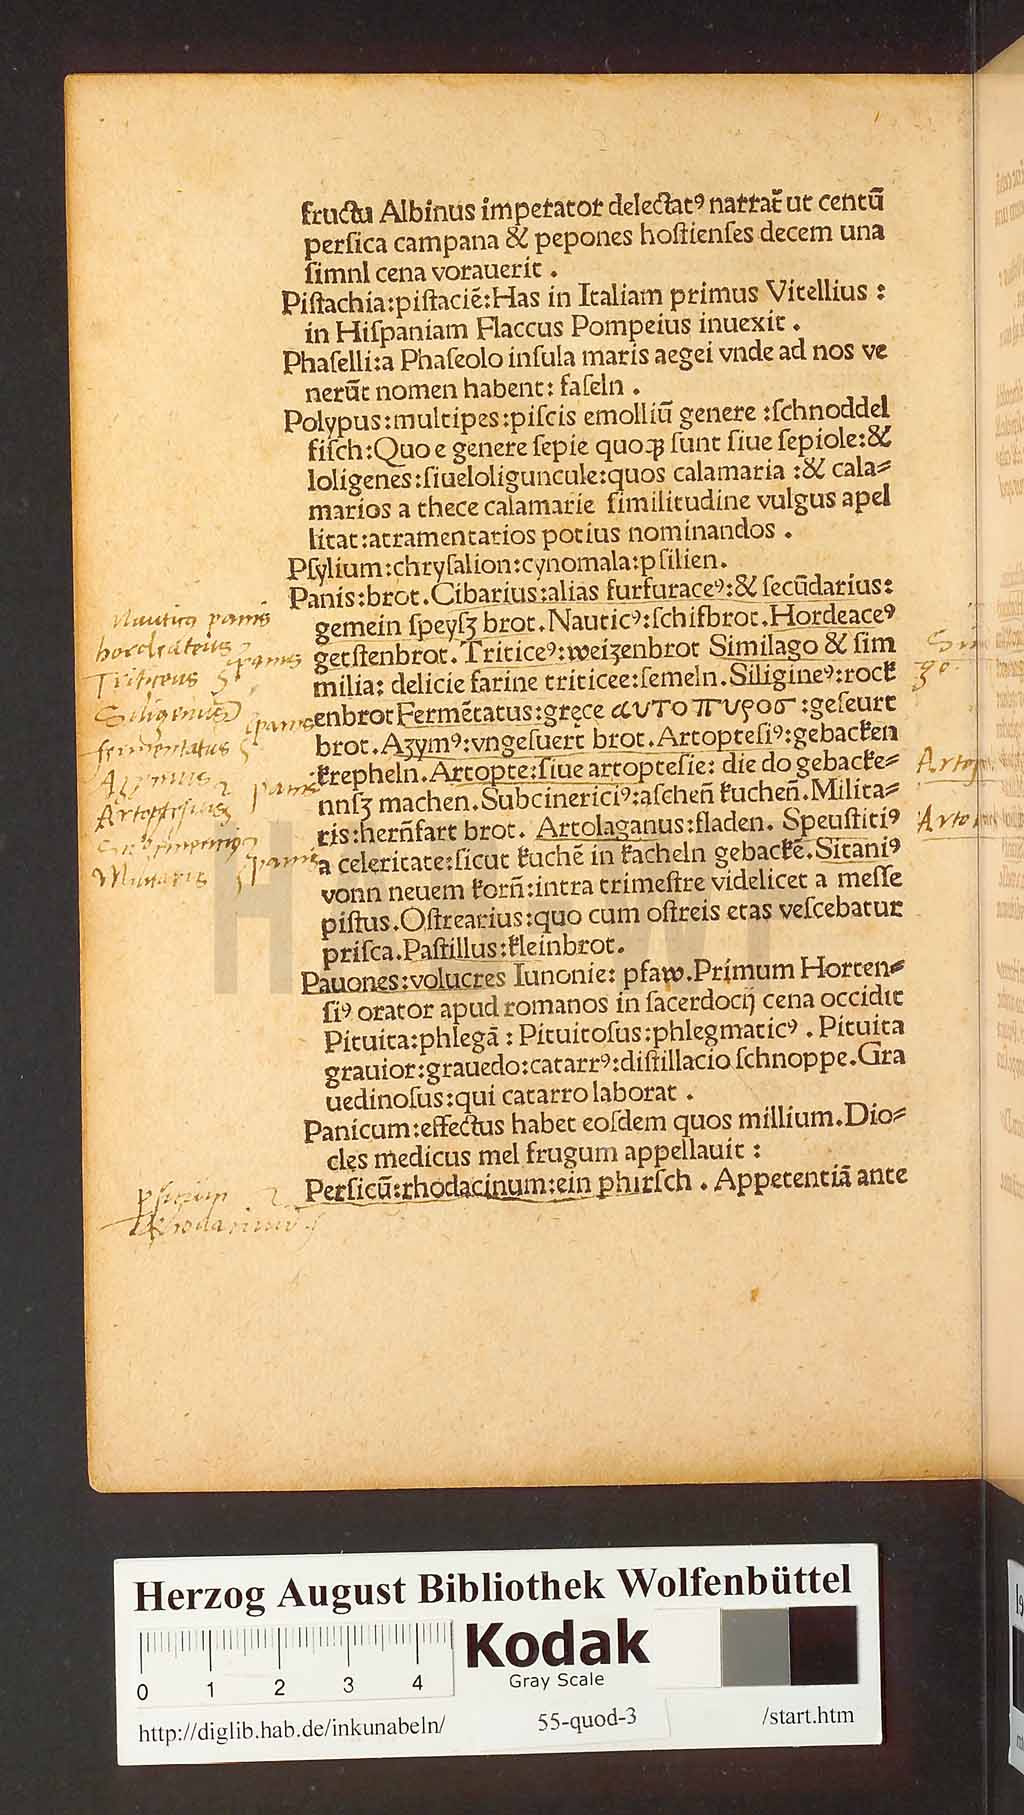 fructu Albinus imperator delectatꝰ narrat̄ ut centū
persica campana & pepones hostienses decem una
simnl cena vorauerit .
Pistachia:pistaciē:Has in Italiam primus Vitellius :
in Hispaniam Flaccus Pompeius inuexit .
Phaselli:a Phaseolo insula maris aegei vnde ad nos ve
nerūt nomen habent: faseln .
Polypus:multipes:piscis emolliū genere :schnoddel
fisch:Quo e genere sepie quoqꝫ sunt siue sepiole:&
loligenes:siueloliguncule:quos calamaria :& cala=
marios a thece calamarie similitudine vulgus apel
litat:atramentarios potius nominandos .
Psylium:chrysalion:cynomala:psilien.
Panis:brot.Cibarius:alias furfuraceꝰ:& secūdarius:
gemein speysʒ brot.Nauticꝰ:schifbrot.Hordeaceꝰ
gerstenbrot.Triticeꝰ:weizenbrot Similago & sim
milia: delicie farine triticee:semeln.Siligineꝰ:rock
enbrot Fermētatus:gręce αυτοπυροσ :geseurt
brot.Azymꝰ:vngesuert brot.Artoptesiꝰ:gebacken
krepheln.Artopte:siue artoptesie: die do gebacke=
nnsʒ machen.Subcinericiꝰ:aschen̄ kuchen̄.Milita=
ris:hern̄fart brot. Artolaganus:fladen. Speustitiꝰ
a celeritate:sicut kuchē in kacheln gebackē.Sitaniꝰ
vonn neuem korn̄:intra trimestre videlicet a messe
pistus.Ostrearius:quo cum ostreis etas vescebatur
prisca.Pastillus:kleinbrot.
Pauones:volucres Iunonie: pfaw.Primum Horten=
siꝰ orator apud romanos in sacerdocij cena occidit
Pituita:phlegā : Pituitosus:phlegmaticꝰ . Pituita
grauior:grauedo:catarrꝰ:distillacio schnoppe.Gra
uedinosus:qui catarro laborat .
Panicum:effectus habet eosdem quos millium.Dio=
cles medicus mel frugum appellauit :
Persicū:rhodacinum:ein phirsch . Appetentiā ante
Nauticꝰ panis
hordeaceus
Triticeus panis
Siligeniꝰ panis
fermentatus
Azymus panis
Artoptesius
Subcinericiꝰ panis
Militaris
Persicum
Rhodacinum
Herzog August Bibliothek Wolfenbüttel
Kodak
Gray Scale
0 1 2 3 4
http://diglib.hab.de/inkunabeln/ 55-quod-3 /start.htm